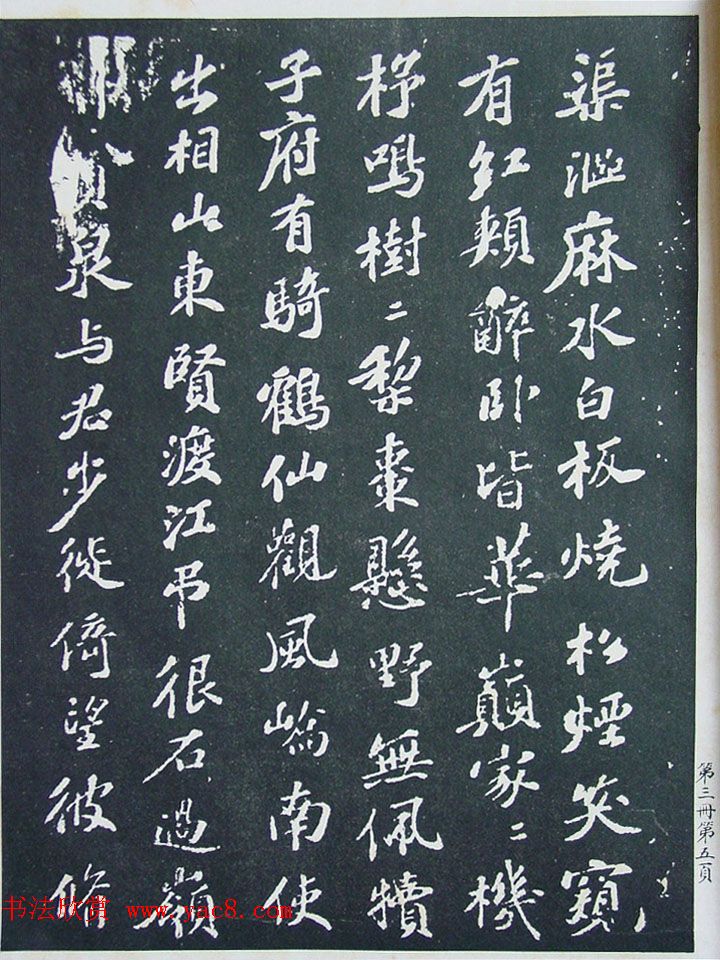 渠漚麻水白板燒松煙笑窺
有紅頰醉卧皆華巔家〻機
杼鳴樹〻梨棗懸野無佩犢
子府有騎鶴仙觀風嶠南使
出相山東賢渡江弔很石過嶺
泉与君步徙倚望彼脩
第三冊第五頁
书法欣赏 www.yac8.com